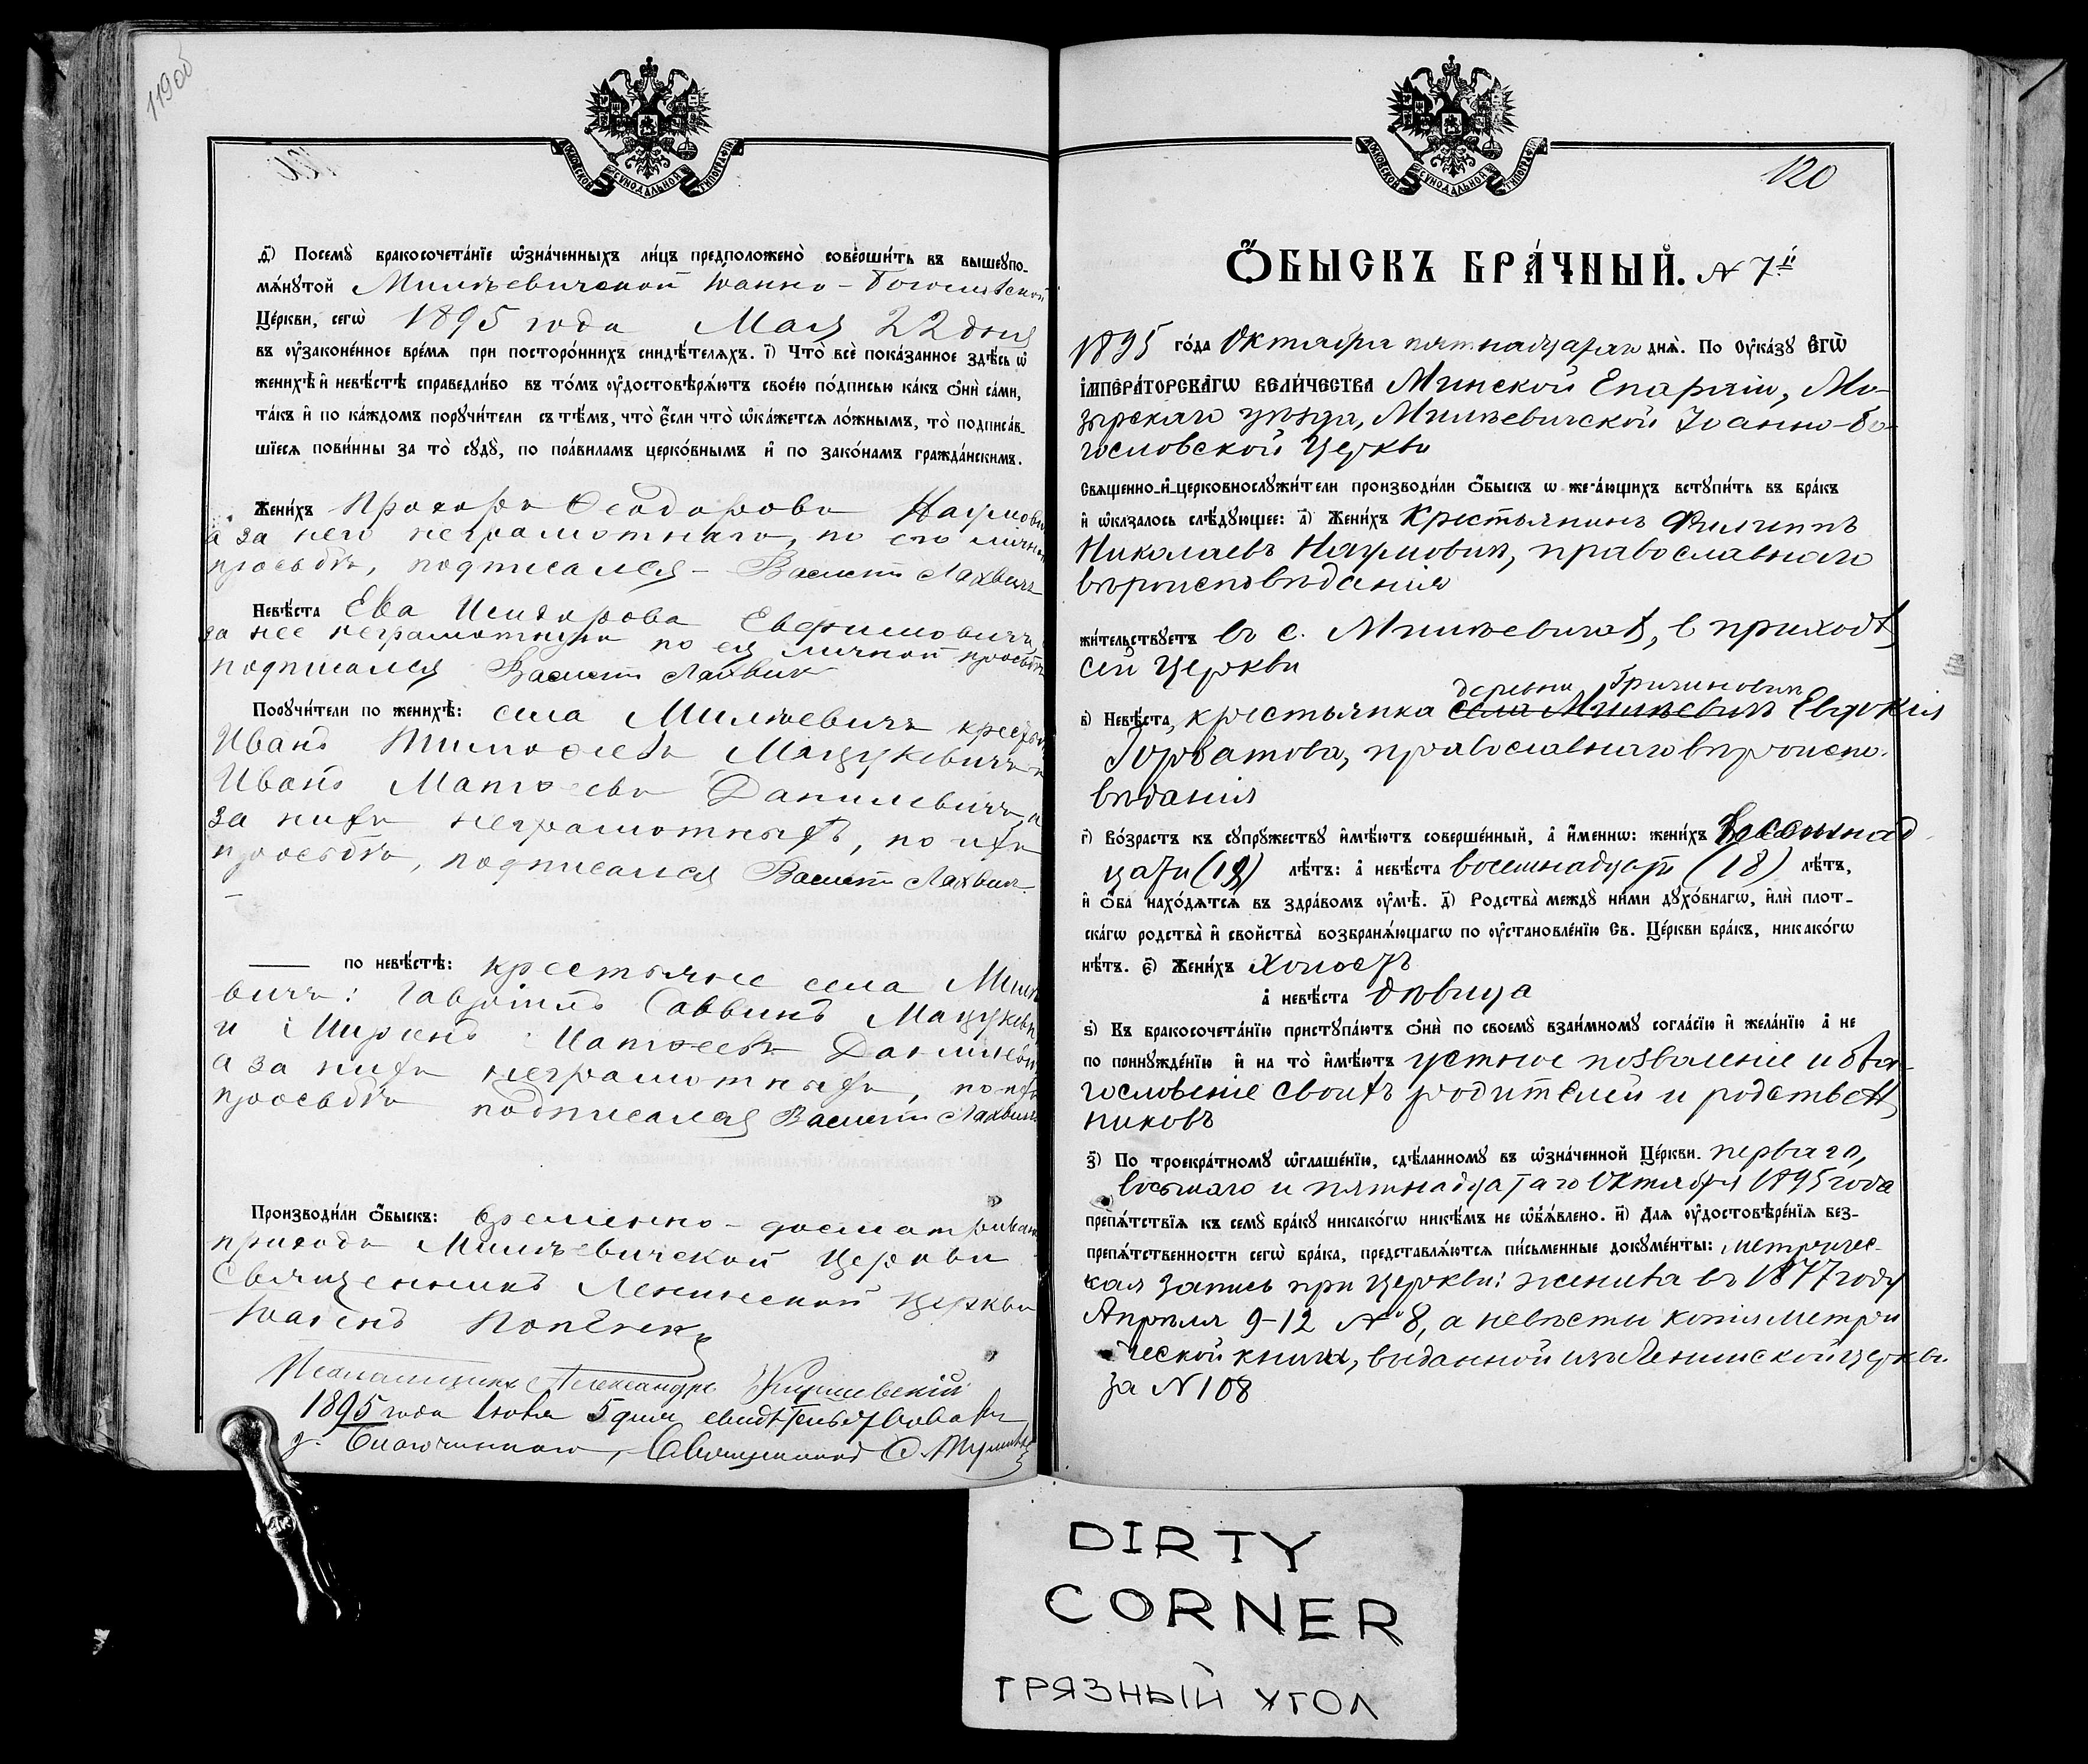 119 об
МОСКОВСКОЙ СУНОДАЛЬНОЙ ТИПОГРАФІИ
д҃) Посемꙋ̀ бракосочета́нїе ѡ҆зна́ченныхъ ли́цъ предположено̀ соверши́ть въ вышеꙋпо-
мѧ́нꙋтой Милевичской Іоанно-Богословской
Це́ркви, сегѡ̀ 1895 года Мая 22 дня
въ ᲂу҆законе́нное вре́мѧ при посторо́ннихъ свидѣ́телѧхъ. і҃) Что̀ всѐ пока́занное здѣ́сь ѡ҆
женихѣ̀ и҆ невѣ́стѣ справедли́во въ то́мъ ᲂу҆достовѣрѧ́ютъ свое́ю по́дписью ка́къ ѻ҆нѝ са́ми,
та́къ и҆ по ка́ждомъ порꙋчи́тели съ тѣ́мъ, что̀ є҆́сли что̀ ѡ҆ка́жетсѧ ло́жнымъ, то̀ подписа́в-
шїесѧ пови́нны за то̀ сꙋдꙋ̀, по пра́виламъ церко́внымъ и҆ по зако́намъ гражда́нскимъ.
Жени́хъ Прохоръ Ѳеодоровъ Наумович
а за него неграмотнаго, по его личной
просьбѣ, подписался - Василій Лахвич
Невѣ́ста Ева Исидорова Евфимович,
за нее неграмотную по ея личной просьбѣ
подписался Василій Лахвич
Порꙋчи́тели по женихѣ̀: села Милевичъ крестьян
Иванъ Тимоѳеевъ Мацукевичъ и
Иванъ Матѳеевъ Данилевичъ, а
за нихъ неграмотныхъ, по ихъ
просьбѣ, подписался Василій Лахвич
по невѣ́стѣ: крестьяне села Миле
вичъ: Гавріилъ Саввинъ Мацукев
и Миронъ Матѳеевъ Данилевич
а за нихъ неграмотныхъ, по ихъ
просьбѣ подписался Василій Лахвич
Производи́ли ѻ҆́быскъ: временно-досматривающ
прихода Милевичской Церкви
Священникъ Ленинской Церкви
Псаломщикъ Александръ
1895 года Іюня 5 дня свидѣтельствовалъ
Священникъ
120
МОСКОВСКОЙ СУНОДАЛЬНОЙ ТИПОГРАФІИ
Ѻ҆́БЫСКЪ БРА́ЧНЫЙ. № 7й
1895 го́да Октября пятнадцатаго днѧ̀. По ᲂу҆ка́зꙋ Є҆ГѠ̀
І҆МПЕРА́ТОРСКАГѠ ВЕЛИ́ЧЕСТВА Минской Епархіи, Мо-
зырскаго уѣзда, Милевичской Іоанно-Бо-
гословской Церкви
Свѧщенно-и҆-церковнослꙋжи́тели производи́ли ѻ҆́быскъ ѡ҆ жела́ющихъ встꙋпи́ть въ бра́къ
и҆ ѡ҆казалось слѣ́дꙋющее: а҃) Жени́хъ Крестьянинъ Филиппъ
Николаевъ Наумович, православнаго
вѣроисповѣданія
жи́тельствꙋетъ въ с. Милевичахъ, в приходѣ
сей Церкви
деревни Гричинович
в҃) Невѣ́ста, крестьянка села Милевичъ Евдокія
Горбатова, православнаго вѣроиспо-
вѣданія
г҃) Во́зрастъ къ сꙋпрꙋжествꙋ и҆мѣ́ютъ соверше́нный, а҆ и҆́меннѡ: жени́хъ восемнад
цати (18) лѣ́тъ: а҆ невѣ́ста восемнадцати (18) лѣ́тъ,
и҆ ѻ҆́ба нахо́дѧтсѧ въ здра́вомъ ᲂу҆мѣ̀. д҃) Родства̀ междꙋ̀ ни́ми дꙋхо́внагѡ, и҆лѝ плот-
ска́гѡ родства̀ и҆ свойства̀ возбранѧ́ющагѡ по ᲂу҆становле́нїю Св. Це́ркви бра́къ, никако́гѡ
нѣ́тъ. є҃) Жени́хъ холостъ
а҆ невѣ́ста дѣвица
ѕ҃) Къ бракосочета́нїю пристꙋпа́ютъ ѻ҆нѝ по своемꙋ̀ взаи́мномꙋ согла́сїю и҆ жела́нїю а҆ не
по принꙋжде́нїю и҆ на то̀ и҆мѣ́ютъ устное позволеніе и бла-
гословеніе своихъ родителей и родствен
никовъ
з҃) По троекра́тномꙋ ѡ҆глаше́нїю, сдѣ́ланномꙋ въ ѡ҆зна́ченной Це́ркви. перваго,
восьмаго и пятнадцатаго Октября 1895 года
препѧ́тствїѧ къ семꙋ̀ бра́кꙋ никако́гѡ никѣ́мъ не ѡ҆б̾ѧ́влено. и҃) Длѧ ᲂу҆достовѣре́нїѧ без-
препѧ́тственности сегѡ̀ бра́ка, представлѧ́ютсѧ пи́сьменные докꙋме́нты: метричес-
кая запись при церкви: жениха въ 1877 году
Апрѣля 9-12 № 8, а невѣсты копія метри
ческой книги, выданной изъ Ленинской церкви
за № 108
DIRTY
CORNER
ГРЯЗНЫЙ УГОЛ